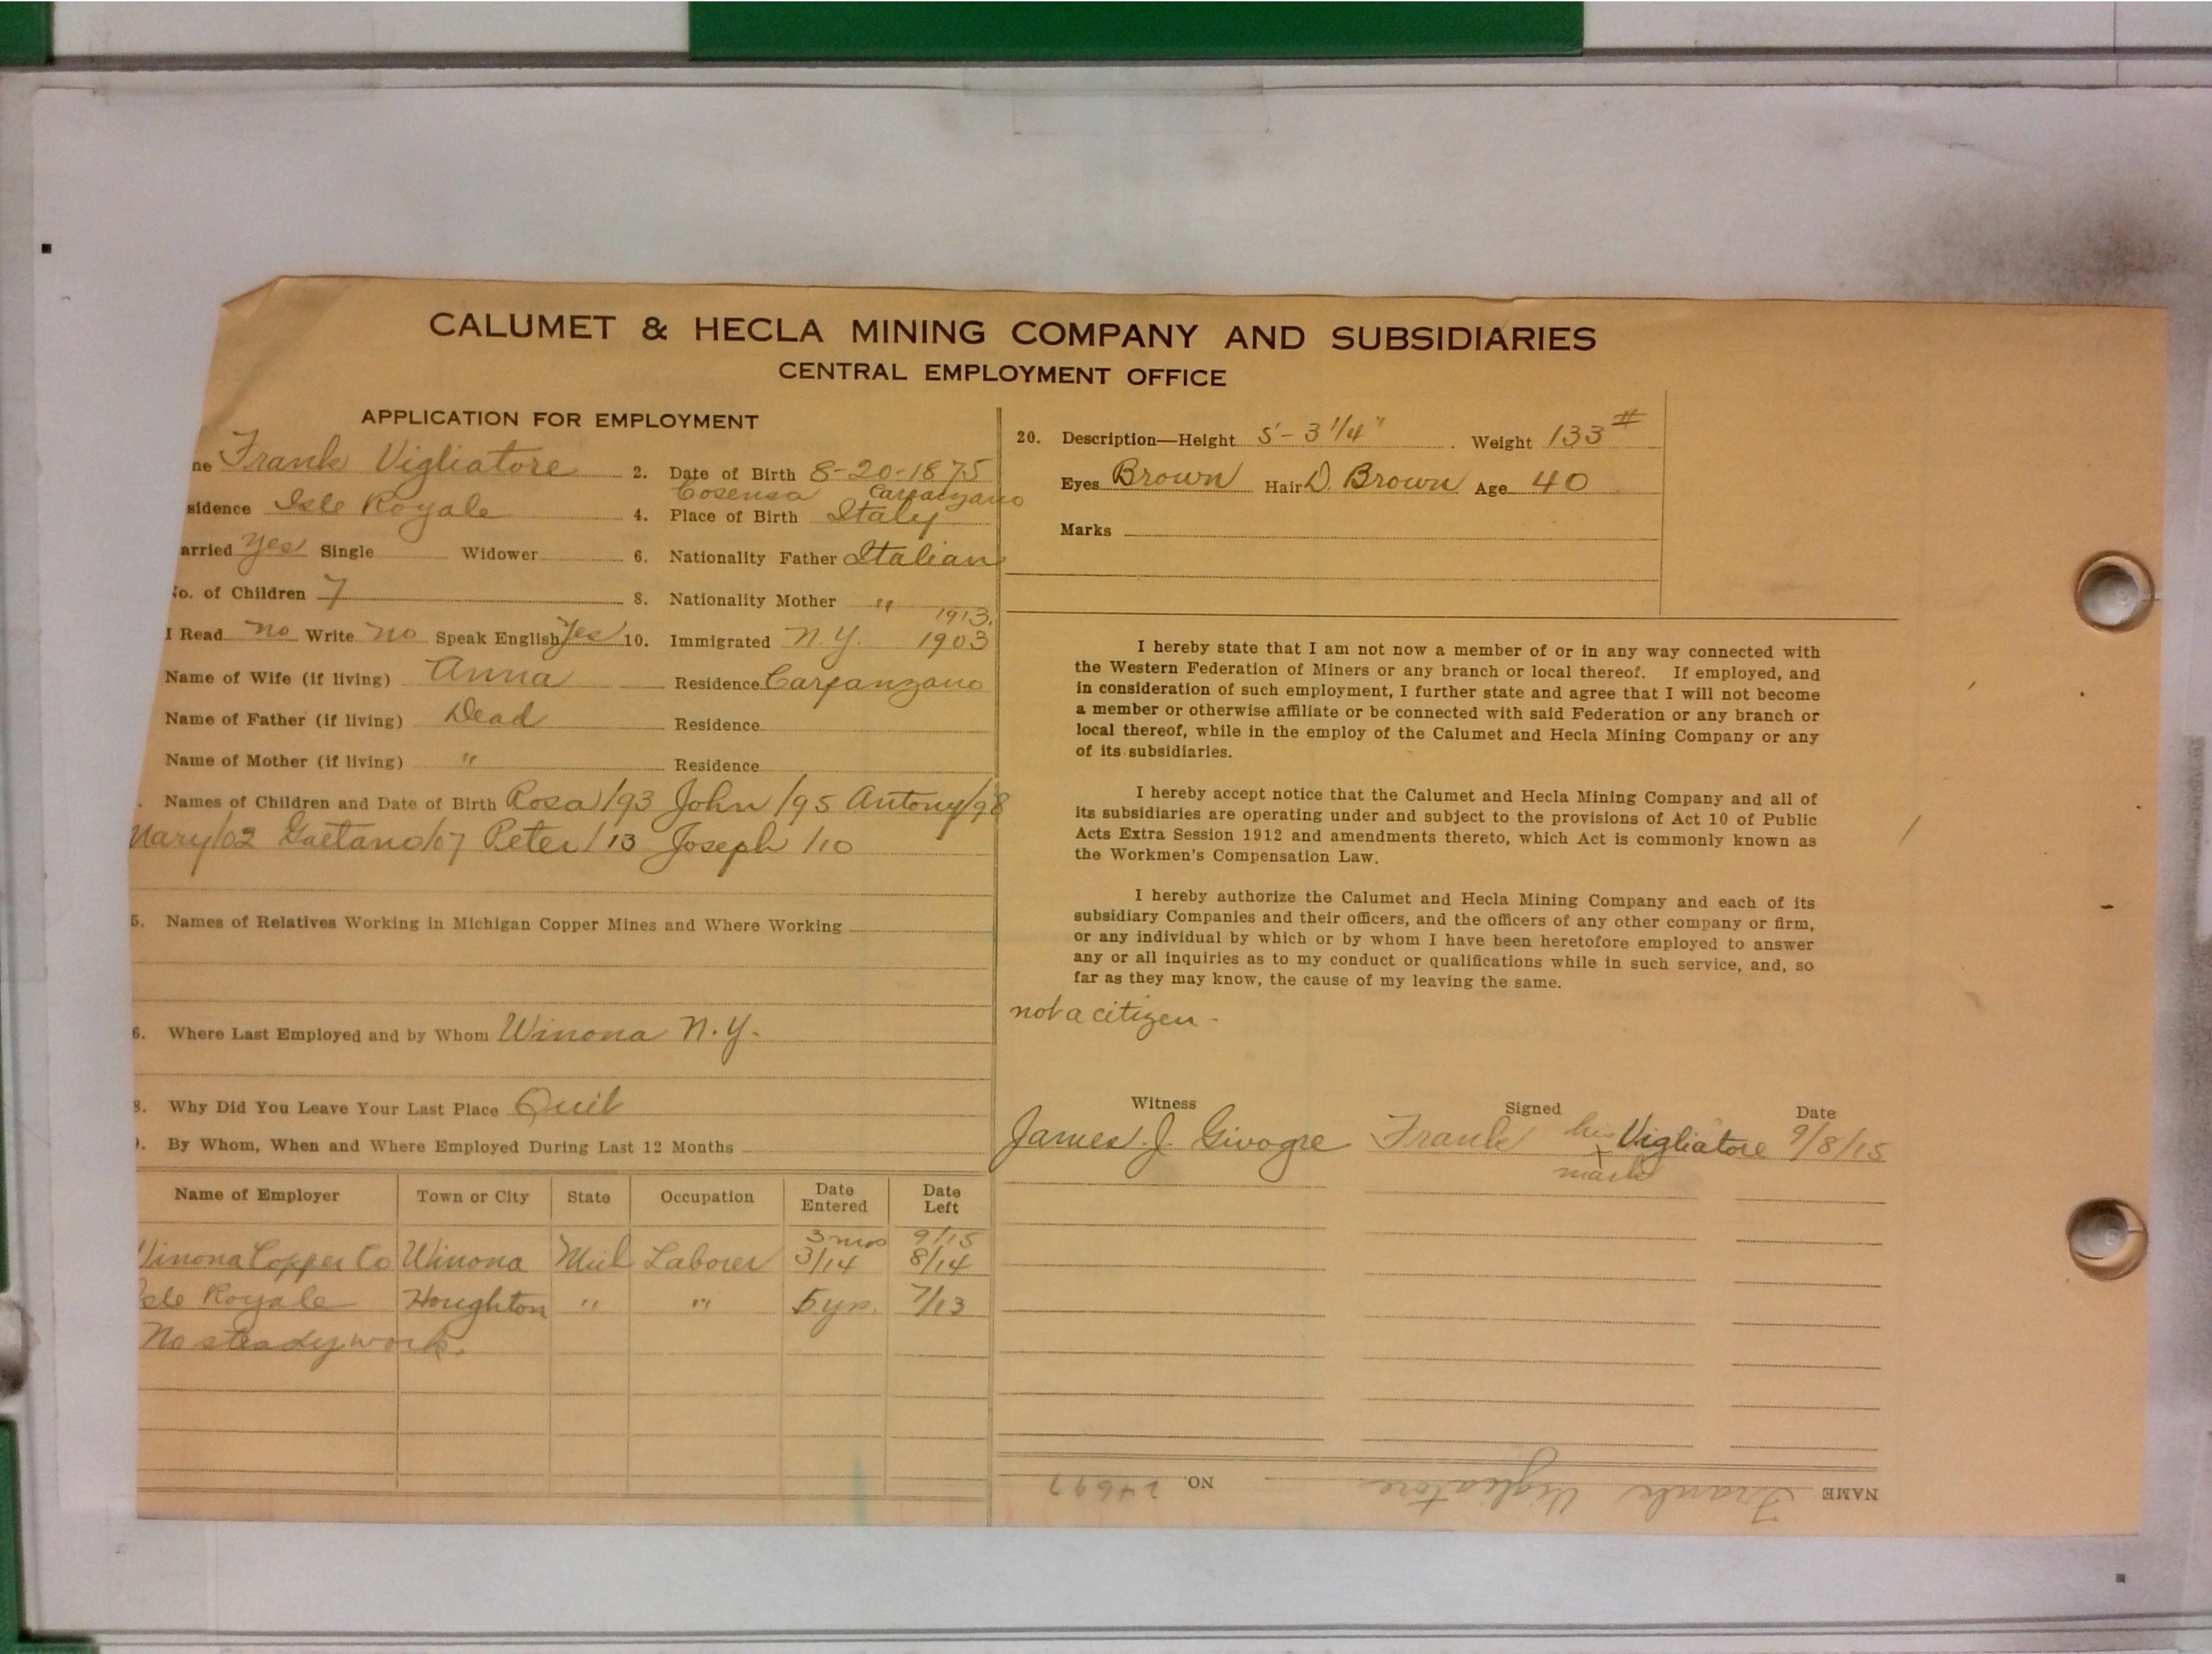 CALUMET & HECLA MINING COMPANY AND SUBSIDIARIES
CENTRAL EMPLOYMENT OFFICE
APPLICATION FOR EMPLOYMENT
ne Frank Vigliatore 2. Date of Birth 8-20-1875
Cosensa Carpanzano
sidence Isle Royale 4. Place of Birth Italy
arried Yes Single Widower 6. Nationality Father Italian
No. of Children 7 8. Nationality Mother "
1913.
I Read no Write no Speak English Yes 10. Immigrated N.Y. 1903
Name of Wife (if living) Anna Residence Carpanzano
Name of Father (if living) Dead Residence
Name of Mother (if living) " Residence
. Names of Children and Date of Birth Rosa/93 John/95 Antony/98
Mary/02 Gaetano/07 Peter/13 Joseph/10
5. Names of Relatives Working in Michigan Copper Mines and Where Working
6. Where Last Employed and by Whom Winona N.Y.
8. Why Did You Leave Your Last Place Quit
). By Whom, When and Where Employed During Last 12 Months
Name of Employer Town or City State Occupation Date Entered Date Left
3 mos 9/15
Winona Copper Co Winona Mich Laborer 3/14 8/14
Isle Royale Houghton " " 5 yrs. 7/13
No steady work.
20. Description—Height 5'-3 1/4" Weight 133#
Eyes Brown Hair D. Brown Age 40
Marks
I hereby state that I am not now a member of or in any way connected with
the Western Federation of Miners or any branch or local thereof. If employed, and
in consideration of such employment, I further state and agree that I will not become
a member or otherwise affiliate or be connected with said Federation or any branch or
local thereof, while in the employ of the Calumet and Hecla Mining Company or any
of its subsidiaries.
I hereby accept notice that the Calumet and Hecla Mining Company and all of
its subsidiaries are operating under and subject to the provisions of Act 10 of Public
Acts Extra Session 1912 and amendments thereto, which Act is commonly known as
the Workmen's Compensation Law.
I hereby authorize the Calumet and Hecla Mining Company and each of its
subsidiary Companies and their officers, and the officers of any other company or firm,
or any individual by which or by whom I have been heretofore employed to answer
any or all inquiries as to my conduct or qualifications while in such service, and, so
far as they may know, the cause of my leaving the same.
not a citizen -
Witness Signed Date
James J. Givogre Frank his x mark Vigliatore 9/8/15
NAME Frank Vigliatore NO.